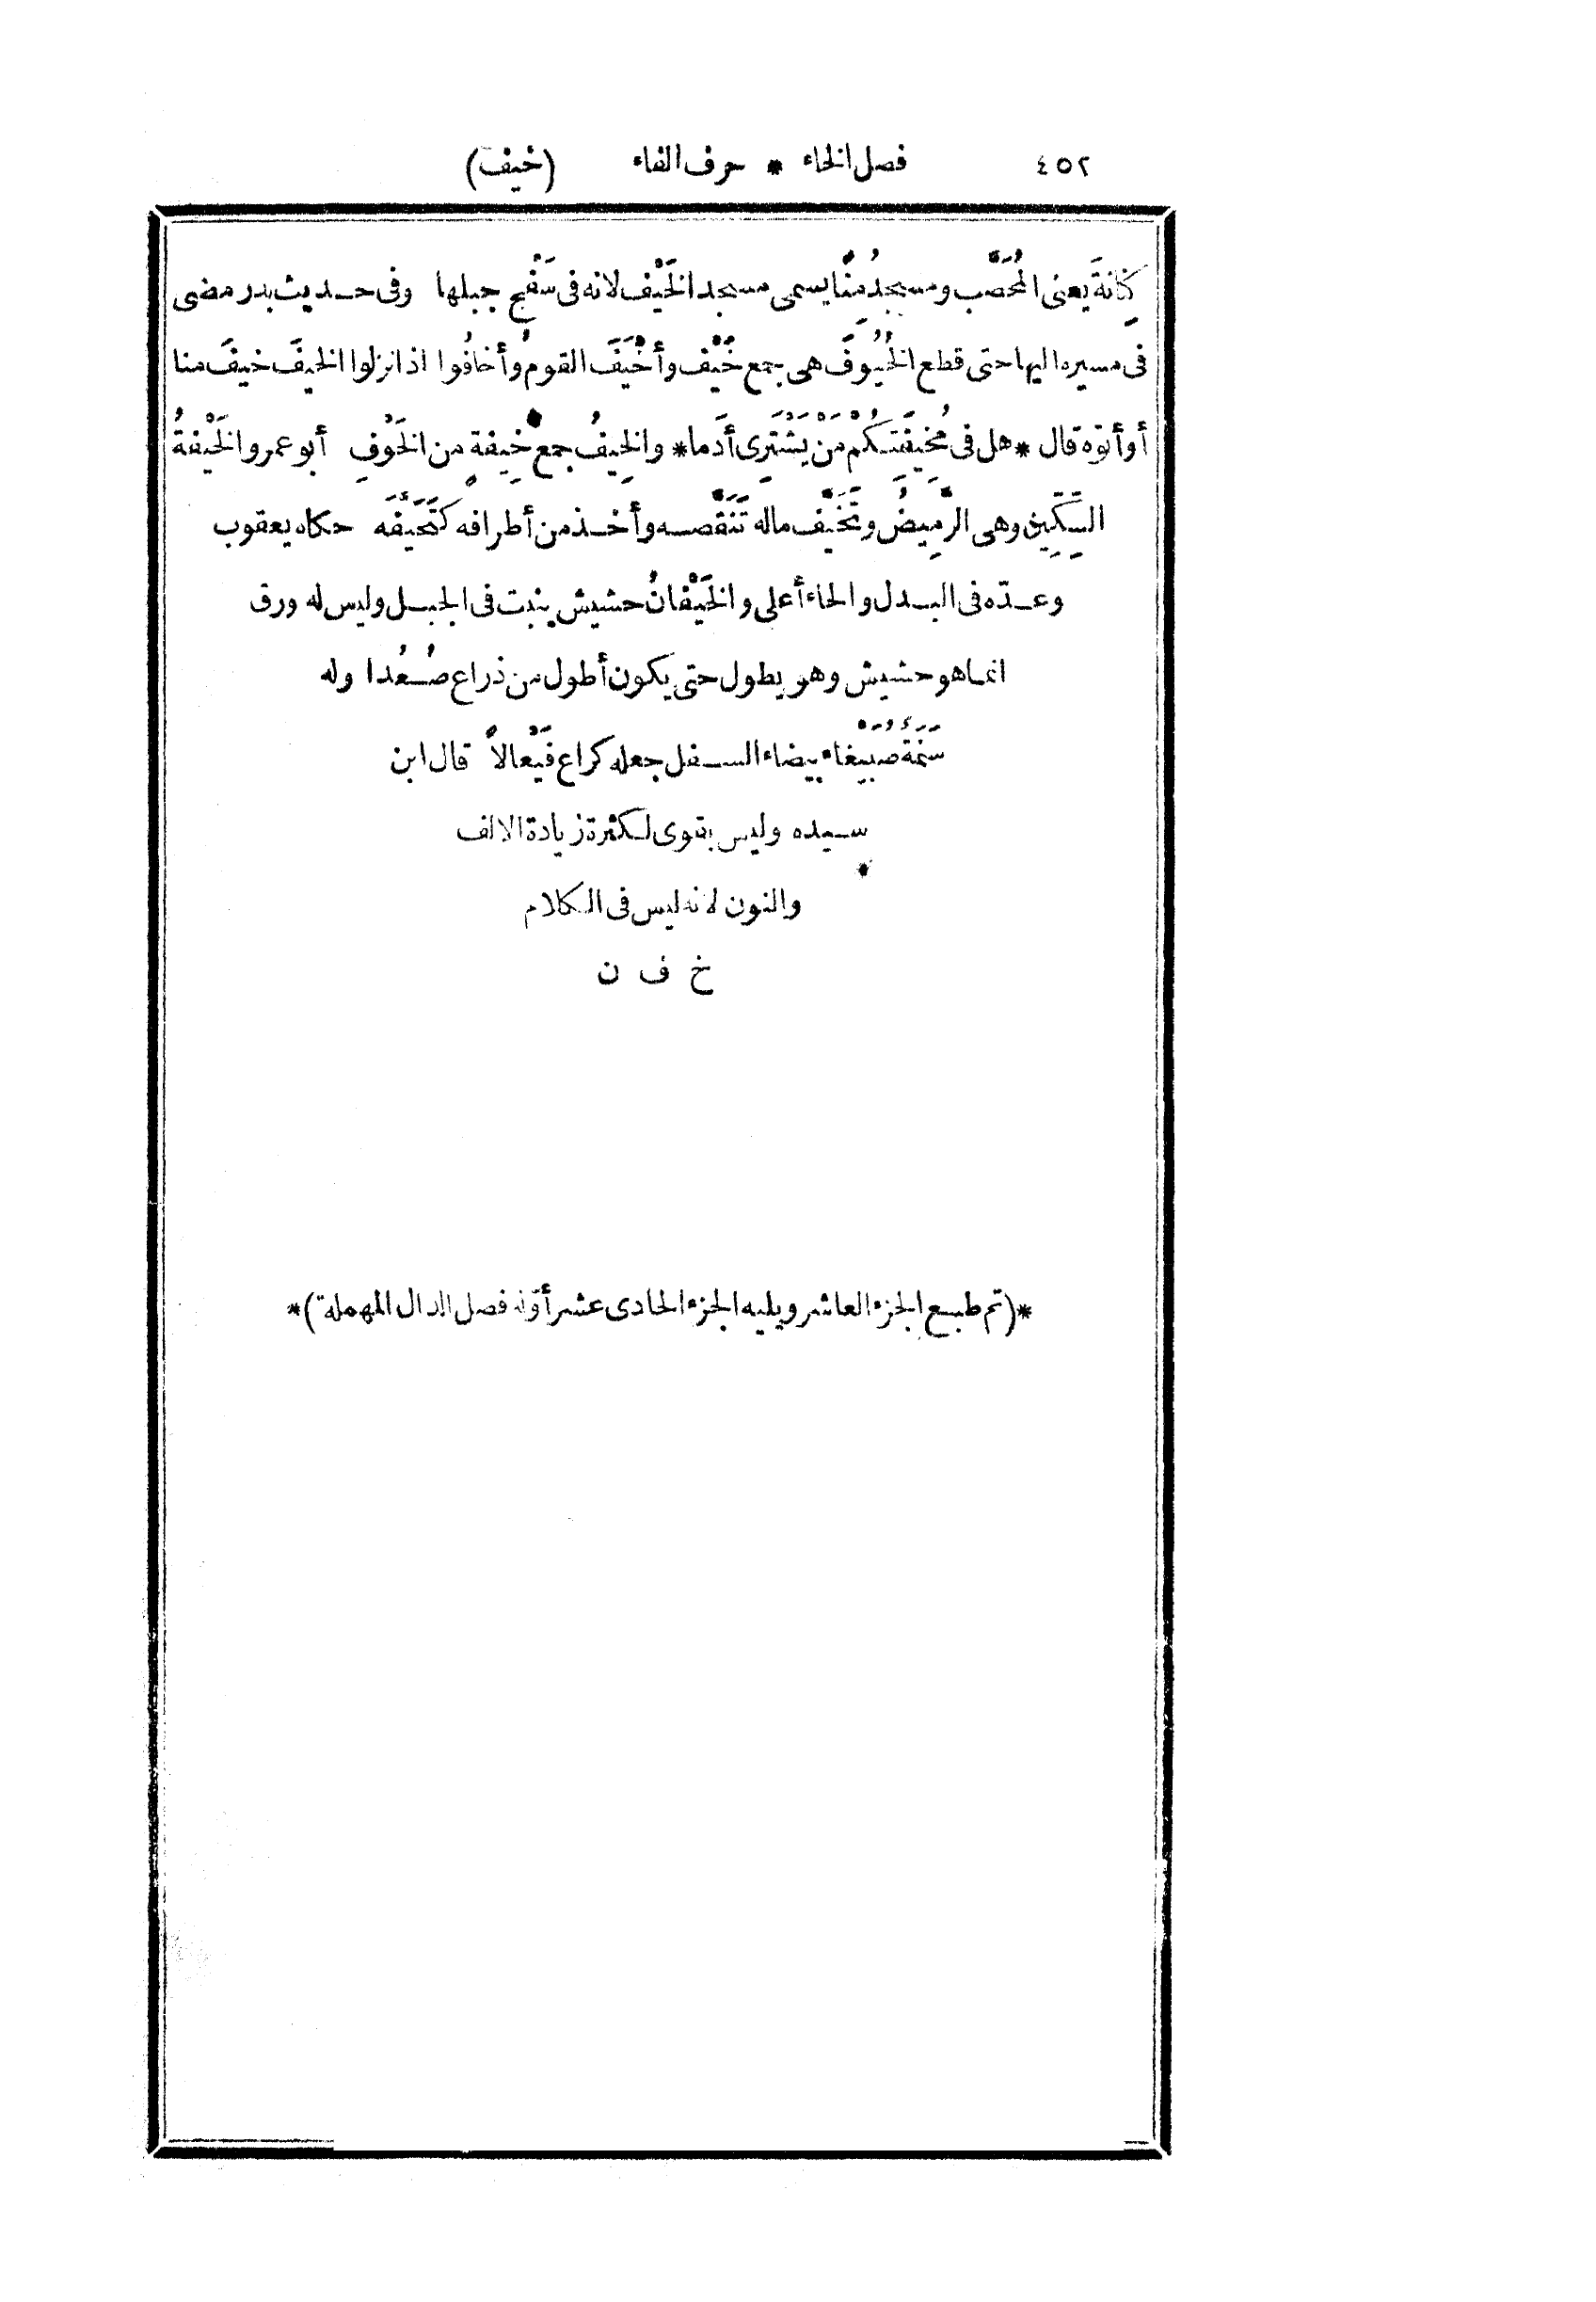 ٤٥٢ فصل الخاء * حرف الفاء (خيف)
كِنَانةَ يعنى المُحَصَّب ومسجدُ مِنًا يسمى مسجد الخَيْف لانه فى سَفْحِ جبلها وفى حديث بدر مضى
فى مسيره اليها حتى قطع الخُيُوفَ هى جمع خَيْف وأَخْيَفَ القومُ وأَخافُوا اذا نزلوا الخيفَ خيفَ منا
أو أتوه قال * هل فى مُخِيفَتِكُمْ مَنْ يَشْتَرِى أَدَما * والخِيفُ جمع خِيفةٍ من الخَوْفِ أبو عمرو الخَيْفةُ
السِّكِّينُ وهى الرَّمِيضُ وتَخَيَّف ماله تَنَقَّصه وأخذ من أطرافه كَتَحَيَّفَه حكاه يعقوب
وعدّه فى البدل والحاء أعلى والخَيْفانُ حشيش ينبت فى الجبل وليس له ورق
انما هو حشيش وهو يطول حتى يكون أطول من ذراع صُعُدا وله
سَنَمَةٌ صُبَيْغاء بيضاء السفل جعله كراع فَيْعالاً قال ابن
سيده وليس بقوى لكثرة زيادة الالف
والنون لانه ليس فى الكلام
خ ف ن
*(تم طبع الجزء العاشر ويليه الجزء الحادى عشر أوّله فصل الدال المهملة)*